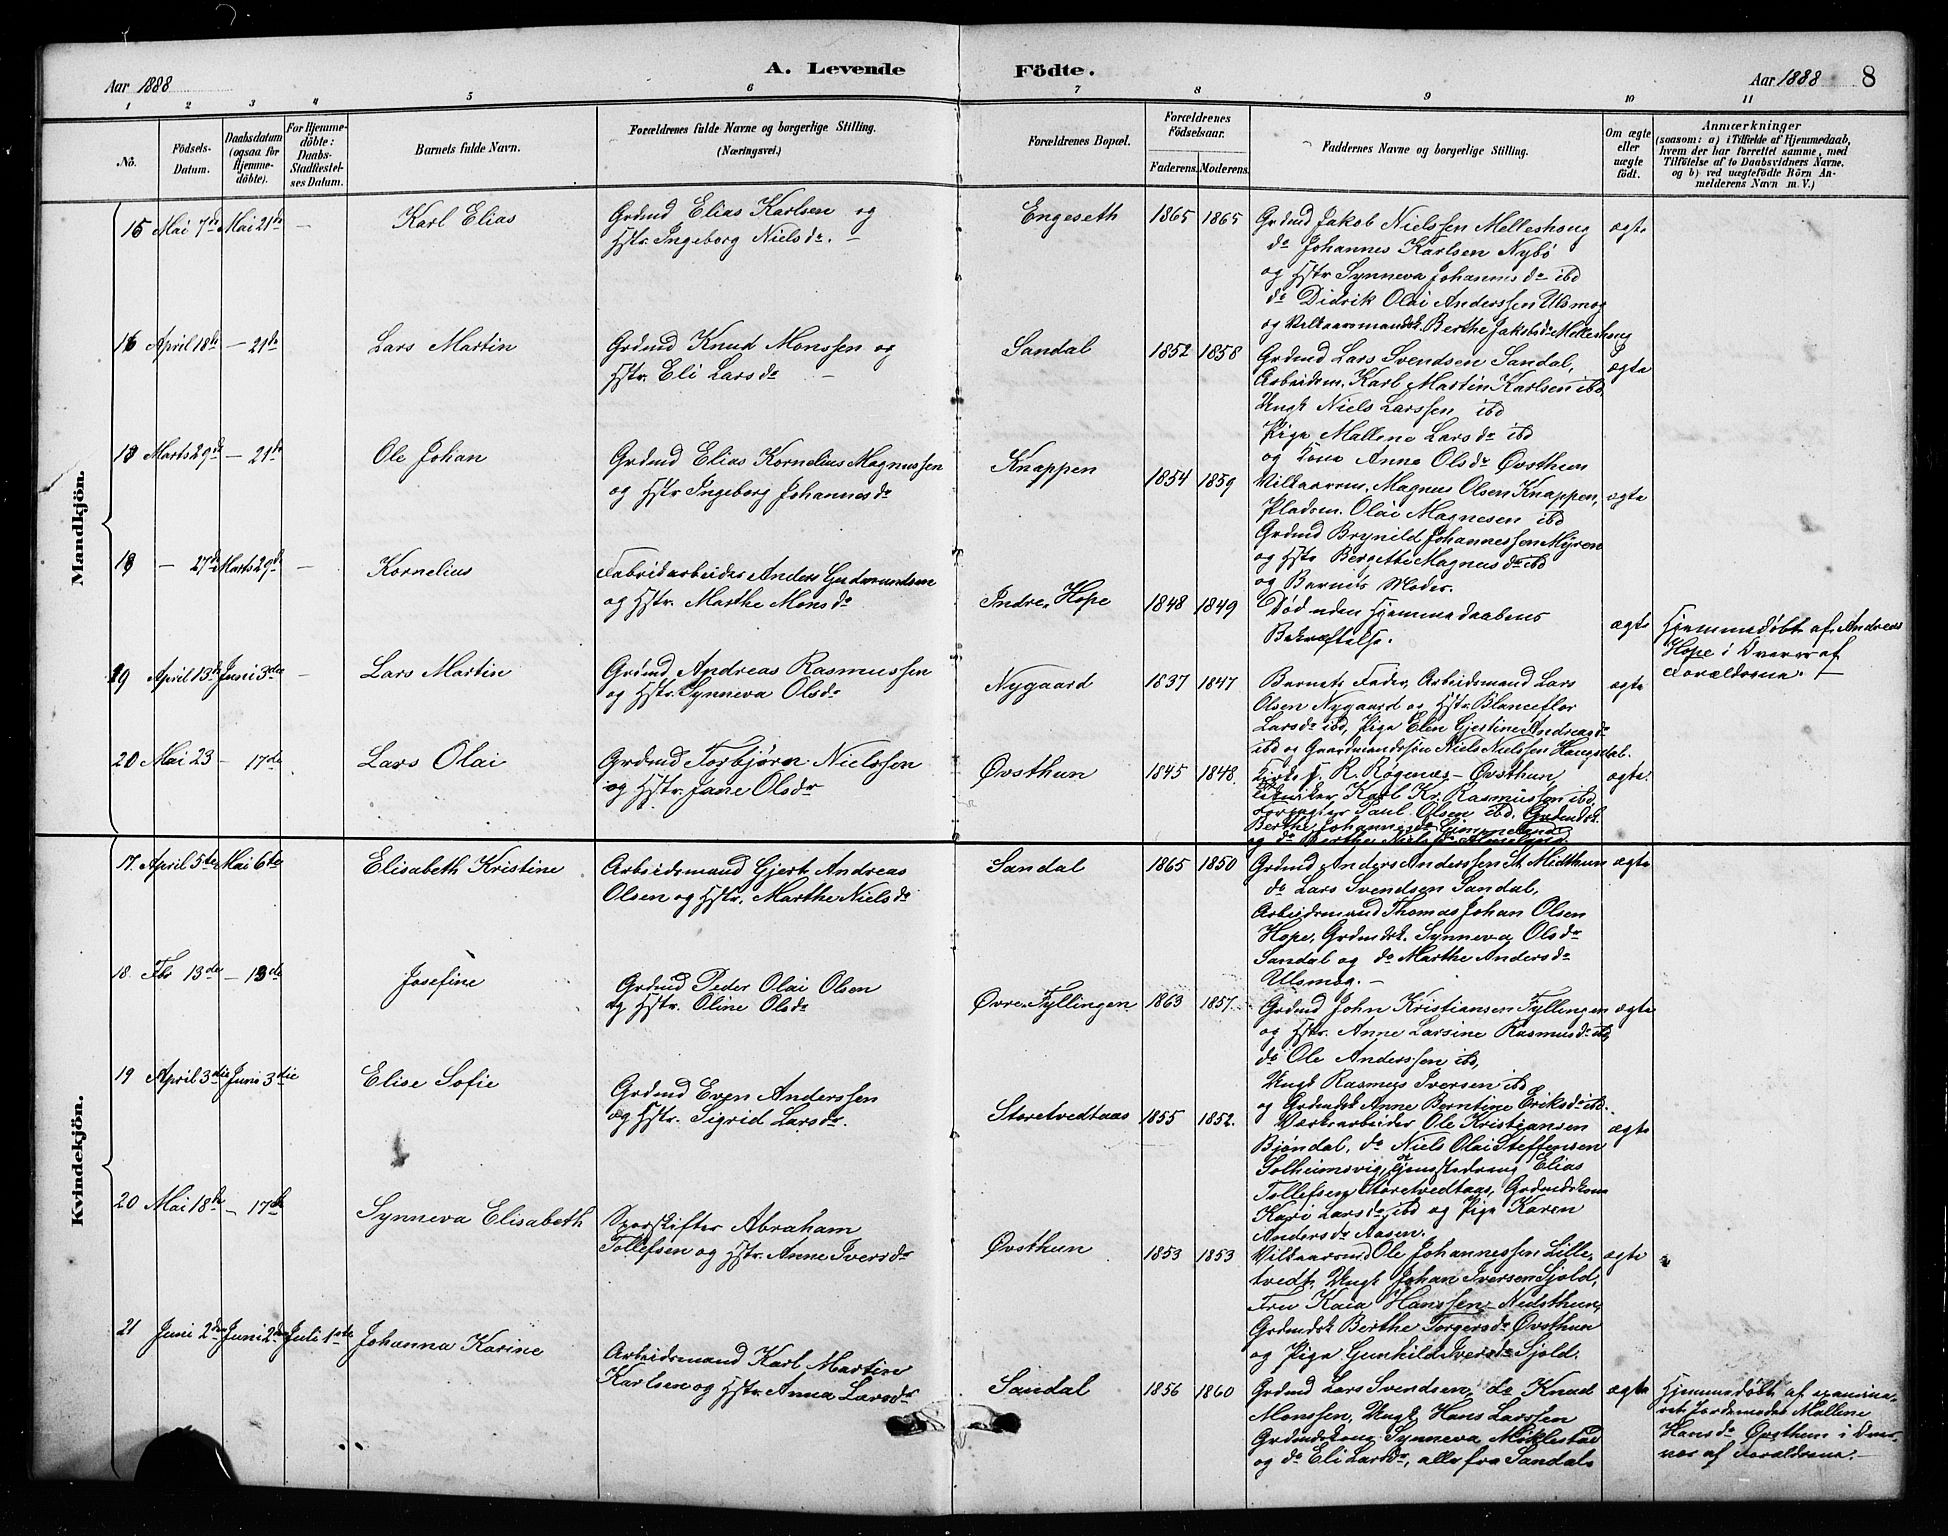 Aar 1888
A. Levende Födte.
Aar 1888 8
1 2 3 4 5 6 7 8 9 10 11
No.
Födsels-
Datum.
Daabsdatum
(ogsaa for
Hjemme-
döbte).
For Hjemme-
döbte:
Daabs-
Stadfæstel-
ses Datum.
Barnets fulde Navn.
Forældrenes fulde Navne og borgerlige Stilling.
(Næringsvei.)
Forældrenes Bopæl.
Forældrenes
Födselsaar.
Faderens. Moderens.
Faddernes Navne og borgerlige Stilling.
Om ægte
eller
uægte
födt.
Anmærkninger
(saasom: a) i Tilfælde af Hjemmedaab,
hvem der har forrettet samme, med
Tilföielse af to Daabsvidners Navne,
og b) ved uægtefödte Börn An-
melderens Navn m. V.)
Mandkjön.
15 Mai 7de Mai 21de — Karl Elias
Grdmd Elias Karlsen og
Hstr. Ingeborg Nielsdr. —
Engeseth 1865 1865
Grdmd Jakob Nielssen Melleshoug
do Johannes Karlsen Nybö
og Hstr Synneva Johannisdr ibd
do Didrik Olai Anderssen Ulsmog
og Vilkaarsmandsk. Berthe Jakobsdr Melleshoug
ægte
16 April 18de — 21de Lars Martin
Grdmd Knud Monssen og
Hstr. Eli Larsdr —
Sandal 1852 1858
Grdmd Lars Svendsen Sandal,
Arbeidsm. Karl Martin Karlsen ibd,
Ungk Niels Larssen ibd
Pige Mallene Larsdr ibd
og Kone Anna Olsdr Øvsthun
ægte
Marts 29de — 21de Ole Johan
Grdmd Elias Kornelius Magnussen
og Hstr Ingeborg Johannesdr
Knappen 1854 1859
Vilkaarsm. Magnus Olsen Knappen,
Pladsm. Olai Magnesen ibd
Grdmd Brynild Johannessen Myren
og Hstr Bergette Magnusdr ibd
og Barnets Moder.
ægte
— 27de Marts 29de — Kornelius
Fabrikarbeider Anders Gudmundsen
og Hstr. Marthe Monsdr
Indre Hope 1848 1849
Död uden Hjemmedaabens
Bekræftelse.
ægte
Hjemmedöbt af Andreas
Hope i Nærvær af
Forældrene. —
19 April 13de Juni 3die — Lars Martin
Grdmd Andreas Rasmussen
og Hstr Synneva Olsdr
Nygaard 1837 1847
Barnets Fader, Arbeidsmand Lars
Olsen Nygaard og Hstr. Blanceflor
Larsdr ibd, Pige Elen Gjestine Andreasdr
ibd og Gaardmandssön Niels Nielssen Haugsdal.
ægte
20 Mai 23 — 17de Lars Olai
Grdmd Torbjörn Nielssen
og Hstr. Jane Olsdr
Øvsthun 1845 1848.
Kirkes. R. Røgenæs – Øvsthun,
Karl Kr. Rasmussen ibd,
Paul Olsen ibd, Grdmdsk.
Berthe Johannesdr
og do Berthe Nielsdr
ægte.
Kvindekjön.
17. April 5te Mai 6te Elisabeth Kristine
Arbeidsmand Gjert Andreas
Olsen og Hstr. Marthe Nielsdr
Sandal 1865 1850
Grdmd Anders Anderssen St. Midthun
do Lars Svendsen Sandal,
Arbeidsmand Thomas Johan Olsen
Hope, Grdmdsk. Synneva Olsdr
Sandal og do Marthe Andersdr
Ulsmog. —
ægte
18 Fbr 13de — 13de Josefine
Grdmd Peder Olai Olsen
og Hstr. Oline Olsdr
Øvre Fyllingen 1863 1857.
Grdmd John Kristiansen Fyllingen
og Hstr. Anne Larsine Rasmusdr ibd,
do Ole Anderssen ibd,
Ungk Rasmus Iversen ibd
og Grdmdsk Anne Berntine Eriksdr ibd.
ægte
19 April 3die Juni 3die Elise Sofie
Grdmd Even Anderssen
og Hstr. Sigrid Larsdr.
Storetvedtaas 1855 1852.
Værksarbeider Ole Kristiansen
Bjöndal, do Niels Olai Steffensen
Solheimsvig, Tjenestedreng Elias
Tollefsen Storetvedtaas, Grdmdskone
Kari Larsdr ibd og Pige Karen
Andersdr Aasen.
ægte
20 Mai 18de — 17de Synneva Elisabeth
Sporskifter Abraham
Tollefsen og Hstr. Anne Iversdr
Øvsthun 1853 1853
Vilkaarsmd Ole Johannessen Lille-
tvedt, Ungk Johan Iversen Sjold,
Fru Kaia Hanssen – Nedsthun,
Grdmdsk Berthe Torgersdr Øvsthun
og Pige Gunhild Iversdr Sjold.
ægte
21 Juni 2den Juni 2den Juli 1ste Johanna Karine
Arbeidsmand Karl Martin
Karlsen og Hstr. Anna Larsdr
Sandal 1856 1860
Grdmd Lars Svendsen, do Knud
Monssen, Ungk Hans Larssen
Grdmdskone Synneva Miklestad
og do Eli Larsdr, alle fra Sandal.
ægte
Hjemmedöbt af examine-
ret Jordemoder Mallene
Hansdr Øvsthun i Nær-
vær af Forældrene. —